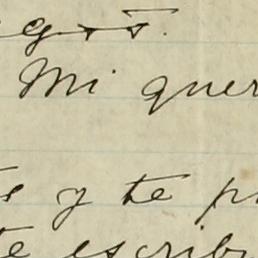 Mi quer
te y te p
te escrib